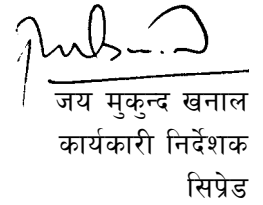 जय मुकुन्द खनाल
कार्यकारी निर्देशक
सिप्रेड